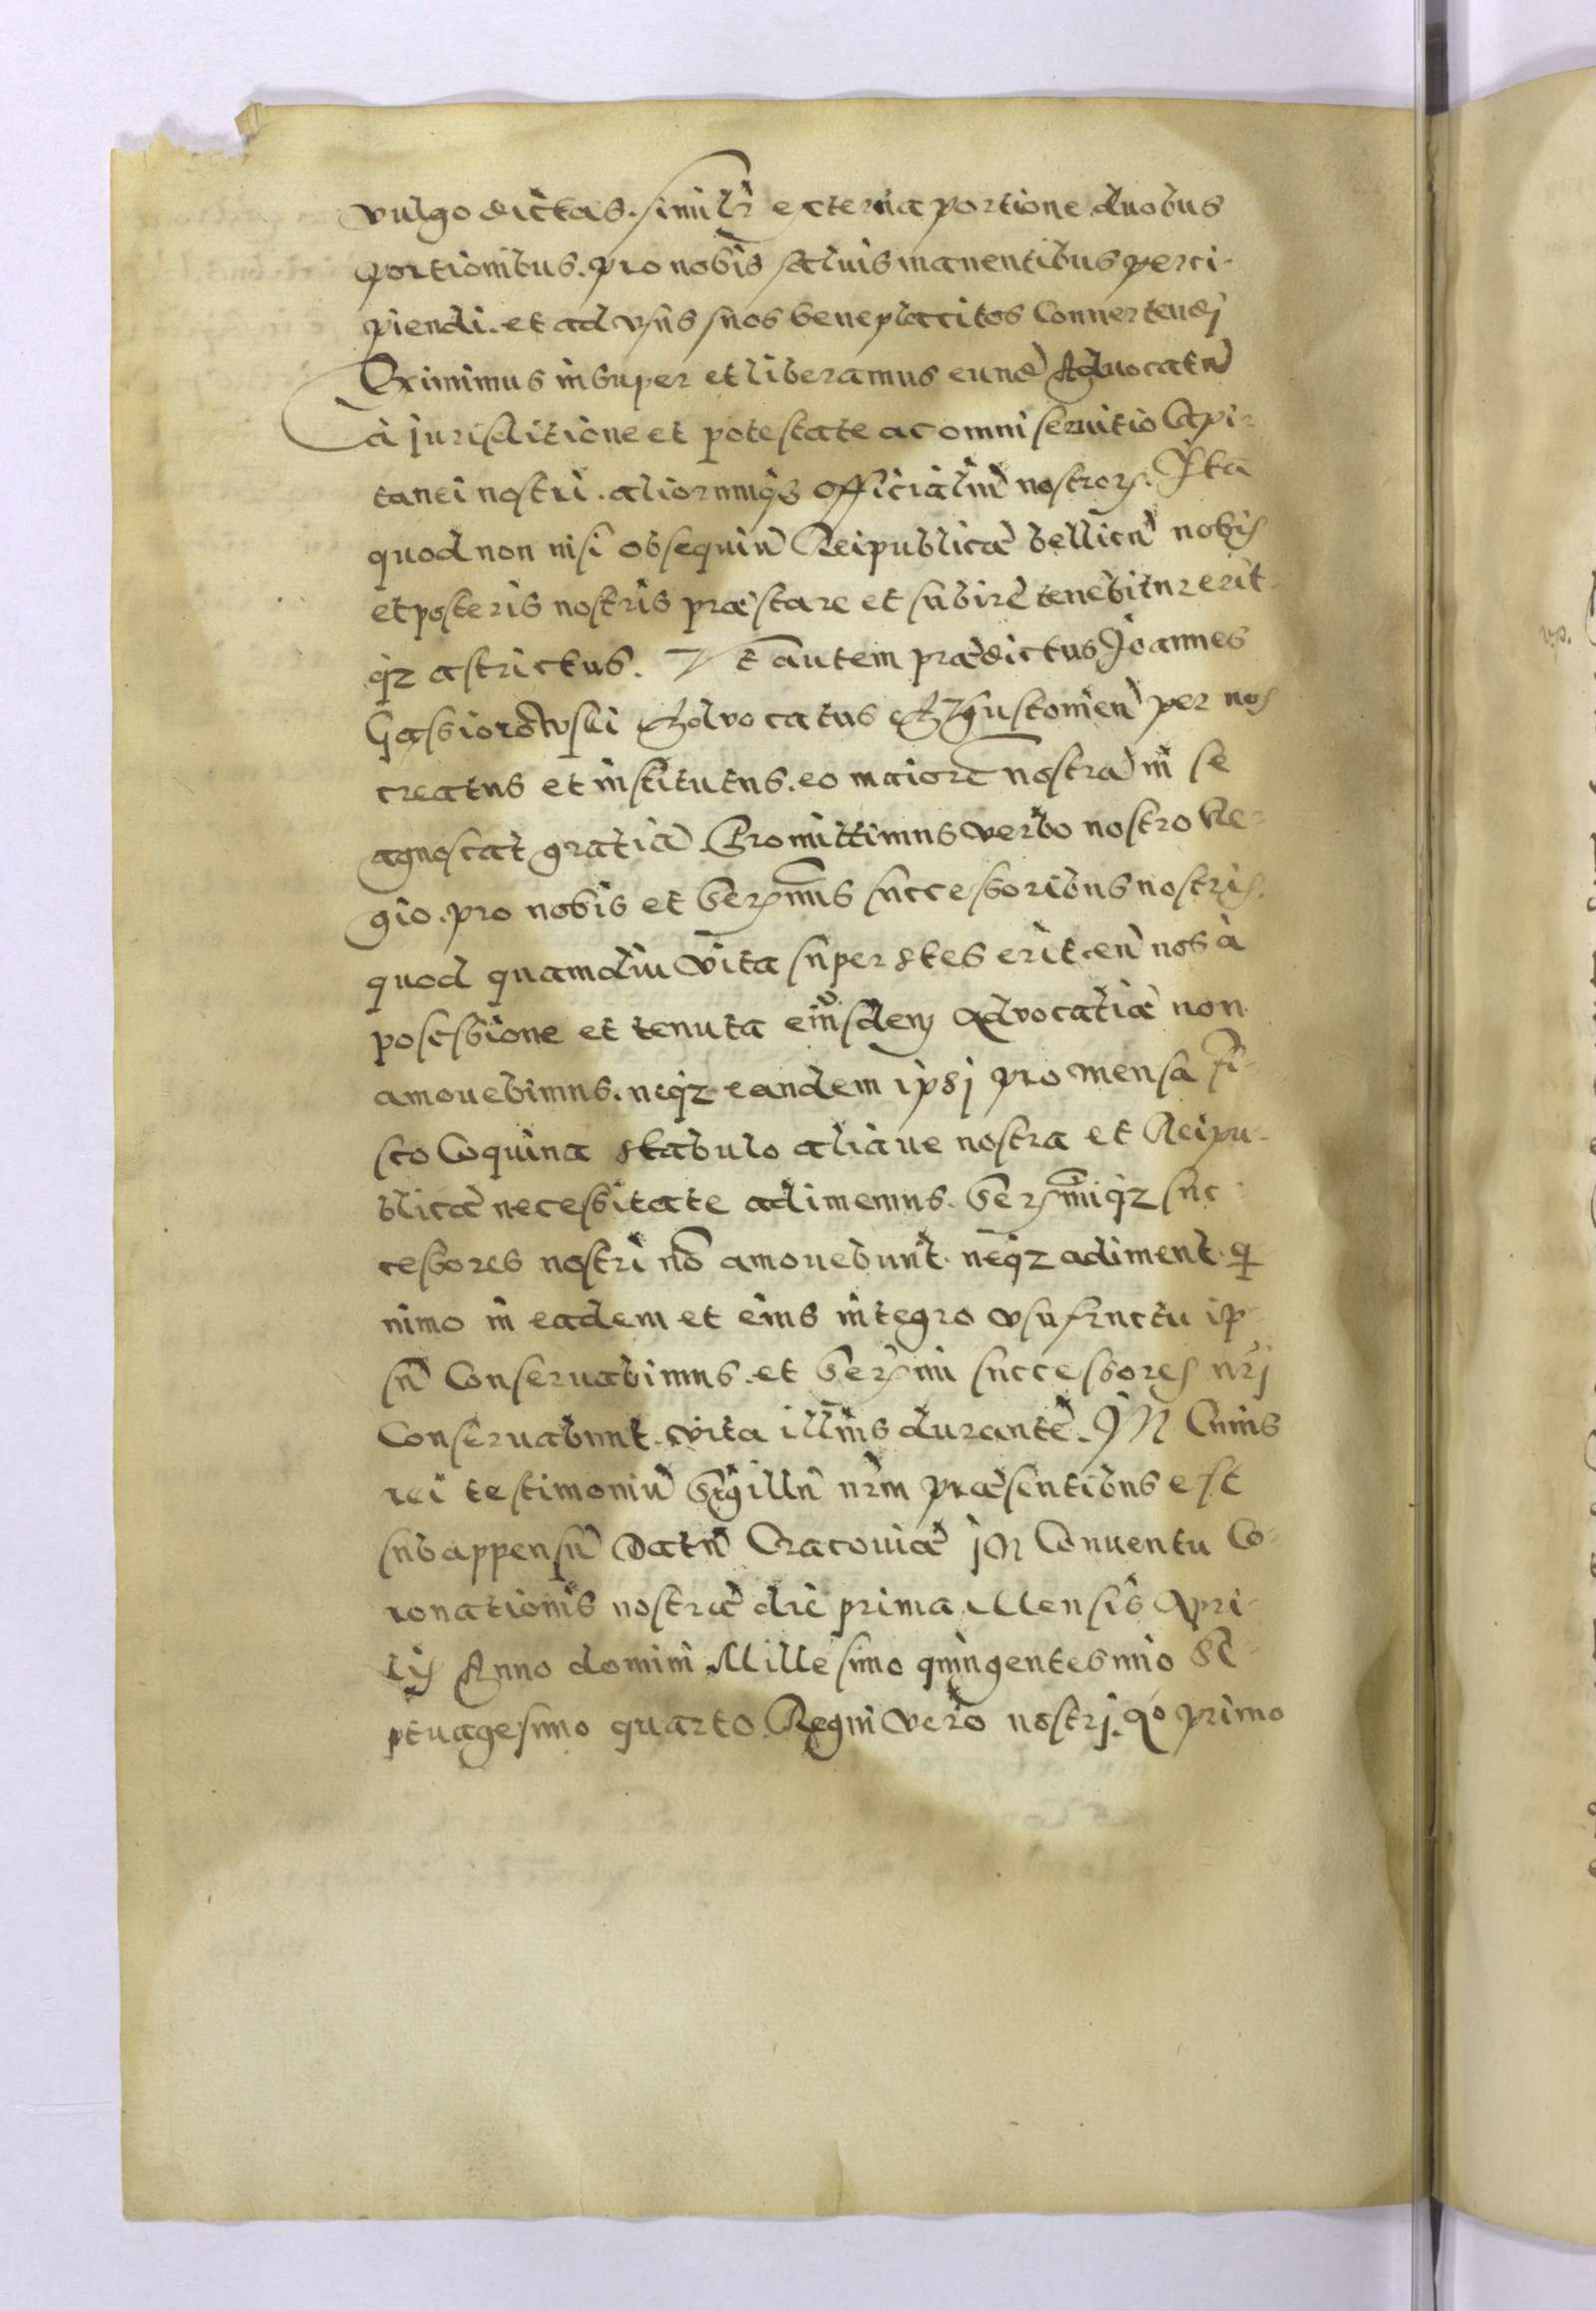 vulgo dictas. similr̃ ex terna portione duobus
portionibus. pro nobis saluis manentibus perci-
piendi. et ad vsus suos beneplacitos Conuertendj
Eximimus insuper et liberamus eund̃ Aduocatũ
à jurisditione et potestate ac omni seruitio Capi-
tanei nostri. aliorumq̃ officialiũ nostror. Ita
quod non nisi obsequiũ Reipublicæ bellicũ nobis
et posteris nostris præstare et subire tenebitur erit-
qz astrictus. Vt autem prædictus Joannes
Gassiorowski Aduocatus per nos
creatus et institutus. eo maiorẽ nostrã in se
agnoscat gratiã. Promittimus verbo nostro Re-
gio. pro nobis et Sermis successoribus nostris.
quod quamdiu vita superstes erit. eũ nos à
possessione et tenuta eiusdem Advocatiæ non
amouebimus. neqz eandem ipsj pro mensa fi-
sco Coquina stabulo aliaue nostra et Reipu-
blicæ necessitate adimemus. Sermiqz suc-
cessores nostri nõ amouebunt. neqz adiment. qi
nimo in eadem et eius integro vsufructu ip-
sũ Conseruabimus. et Sermi successores nrj̃
Conseruabunt. vita illius durante. IN Cuius
rei testimoniũ Sigillũ nrm̃ præsentibus est
subappensũ Datũ Cracouiæ jN Conuentu Co-
ronationis nostræ die prima Mensis Apri-
lis Anno domini Millesimo quingentesimo Se-
ptuagesimo quarto. Regni vero nostrj. Ao primo